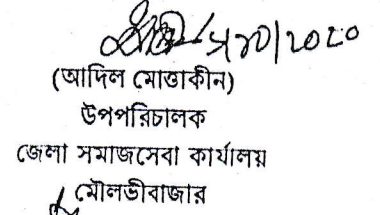 (আদিল মোত্তাকীন)
উপপরিচালক
জেলা সমাজসেবা কার্যালয়
মৌলভীবাজার